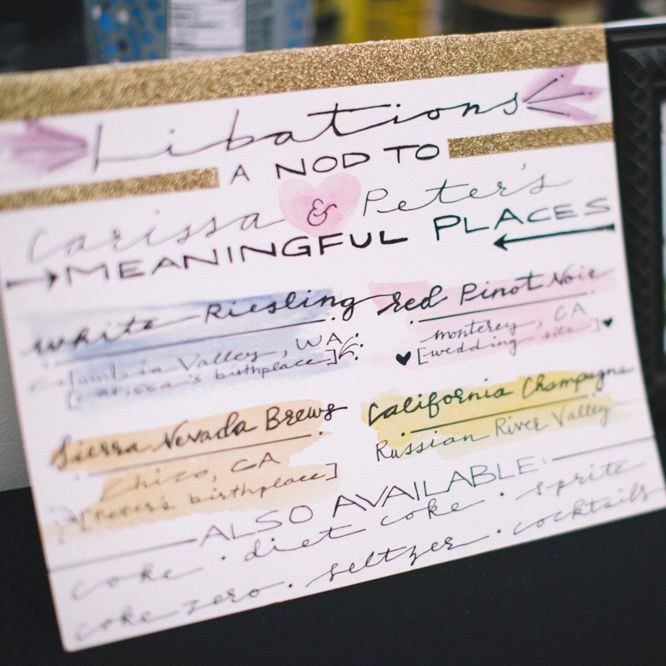 Libations
A NOD TO
Carissa & Peter's
MEANINGFUL PLACES
white Riesling
Columbia Valley, WA
[Carissa's birthplace]
red Pinot Noir
monterey, CA
[wedding site]
Sierra Nevada Brews
Chico, CA
[Peter's birthplace]
California Champagne
Russian River Valley
ALSO AVAILABLE:
coke · diet coke · sprite
coke zero · seltzer · cocktails